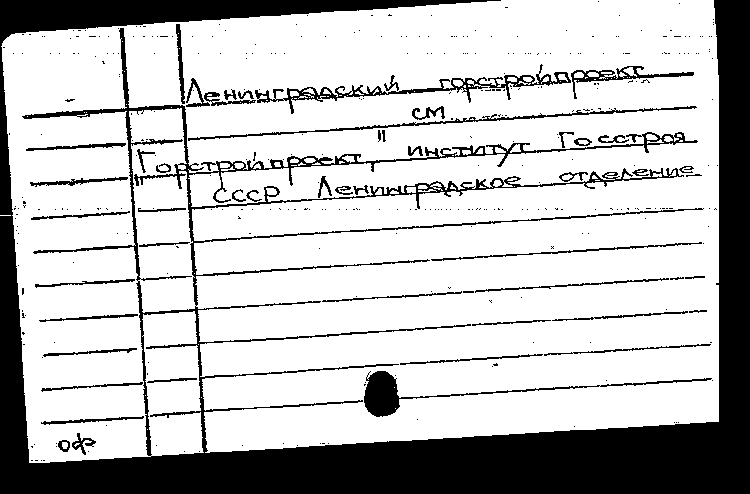 Ленинградский горстройпроект
см
"Горстройпроект", институт Госстроя
СССР Ленинградское отделение
оф